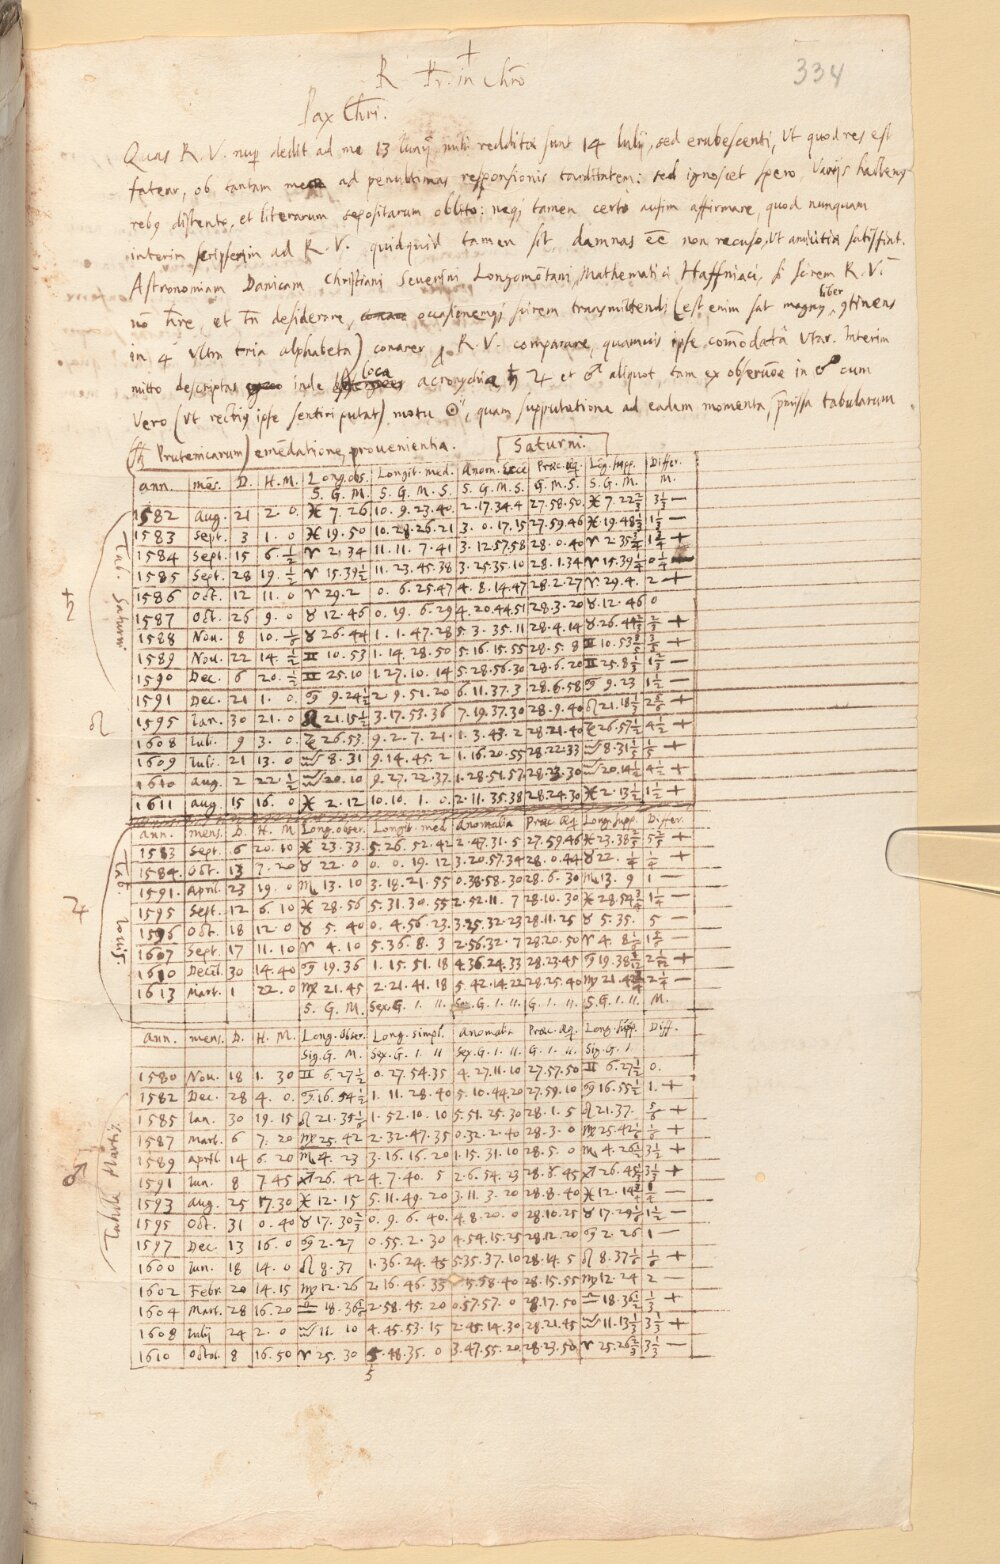 334
+
R Pr. in Chro
Pax Chri.
Quas R. V. nup dedit ad me 13 Iunij mihi redditæ sunt 14 Iulij, sed erubescenti, ut quod res est
fatear, ob tantam ad penultimas responsionis tarditatem: sed ignoscet spero varijs hactenus
rebus distento, et literarum sepositarum oblito: neqs tamen certo ausim affirmare, quod nunquam
interim scripserim ad R. V. quidquid tamen sit damnas eē non recuso, ut amicitiæ satisfiat.
Astronomiam Danicam Christiani Severini Longomōtani, Mathematici Haffniaci, si scirem R. V.
nō hre, et tn desiderare, ocasionemqs scirem transmittendi (est enim sat magnus liber, continens
in 4º ultra tria alphabeta) conarer R. V. comparare, quamvis ipse comōdatâ utar. Interim
mitto descriptas inde loca acronychia ♄ ♃ et ♂ aliquot, tam ex observōe in ☍ cum
vero (ut rectius ipse sentiri putat) motu ☉, quam supputatione ad eadem momenta, pmissa tabularum
(Prutenicarum) emēdatione, provenientia. Saturni.
ann. mēs. D. H. M. Long. obs. Longit. med. Anom. Ecce Præc. æq. Lōg. supp. Differ.
S. G. M. S. G. M. S. S. G. M. S. G. M. S. S. G. M. M.
♄ Tab. Saturni
1582 Aug. 21 2. 0. ♓ 7. 26 10. 9. 23. 40. 2. 17. 34. 4 27. 58. 50. ♓ 7. 22⅔ 3⅓ —
1583 Sept. 3 1. 0 ♓ 19. 50 10. 28. 26. 21 3. 0. 17. 15 27. 59. 46 ♓ 19. 48⅓ 1⅓ —
1584 Sept. 15 6. ½ ♈ 2. 34 11. 11. 7. 41 3. 12 57. 58 28. 0. 40 ♈ 2 35¾ 1¾ +
1585 Sept. 28 19. ½ ♈ 15. 39½ 11. 23. 45. 38 3. 25. 35. 10 28. 1. 34 ♈ 15. 39¼ 0¼ —
1586 Oct. 12 11. 0 ♈ 29. 2 0. 6. 25. 47 4. 8. 14. 47 28. 2. 27 ♈ 29. 4. 2 +
1587 Oct. 26 9. 0 ♉ 12. 46 0. 19. 6. 29 4. 20. 44. 51 28. 3. 20 ♉ 12. 46 0
1588 Nou. 8 10. ⅙ ♉ 26. 44 1. 1. 47. 28 5. 3. 35. 11 28. 4. 14 ♉ 26. 44⅔ ⅔ +
1589 Nou. 22 14. ½ ♊ 10. 53 1. 14. 28. 50 5. 16. 15. 55 28. 5. 8 ♊ 10. 53⅗ ⅗ +
1590 Dec. 6 20. ½ ♊ 25. 10 1. 27. 10. 14 5. 28. 56. 30 28. 6. 20 ♊ 25. 8⅓ 1⅔ —
1591 Dec. 21 1. 0. ♋ 9. 24½ 2 9. 51. 20 6. 11. 37. 3 28. 6. 58 ♋ 9. 23 1½ —
♌ 1595 Ian. 30 21. 0 ♌ 21. 15½ 3. 17. 53. 36 7. 19. 37. 30 28. 9. 40 ♌ 21. 18⅓ 2⅚ +
1608 Iul. 9 3. 0. ♑ 26. 53. 9. 2. 7. 21. 1. 3. 43. 2 28. 21. 40 ♑ 26. 57½ 4½ +
1609 Iuli. 21 13. 0 ♒ 8. 31 9. 14. 45. 2 1. 16. 20. 55 28. 22. 33 ♒ 8. 31⅕ ⅕ +
1610 Aug. 2 22. ½ ♒ 20. 10 9. 27. 22. 37. 1. 28. 51. 57 28. 23. 30 ♒ 20. 14½ 4½ +
1611 Aug. 15 16. 0 ♓ 2. 12 10. 10. 1. 0 2. 11. 35. 38 28. 24. 30 ♓ 2. 13½ 1½ +
ann. mens. D. H. M. Long. obser. Longit. med Anomalia Præc. æq. Long. supp. Differ.
♃ Tab. Iouis
1583 Sept. 6 20. 40 ♓ 23. 33. 5. 26. 52. 42 2. 47. 31. 5 27. 59. 46 ♓ 23. 38⅖ 5⅖ +
1584. Oct. 13 7. 20 ♉ 22. 0 0. 0. 19. 12 3. 20. 57. 34 28. 0. 44 ♉ 22. ¼ ¼ +
1591. April. 23 19. 0 ♏ 13. 10 3. 18. 21. 55 0. 38. 58. 30 28. 6. 30 ♏ 13. 9 1 —
1595 Sept. 12 6. 10 ♓ 28. 56 5. 31. 30. 55 2. 52. 11. 7 28. 10. 30 ♓ 28. 54¾ 1¼ —
1596 Oct. 18 12. 0 ♉ 5. 40 0. 4. 56. 23 3. 25. 32. 23 28. 11. 25 ♉ 5. 35. 5 —
1607 Sept. 17 11. 10 ♈ 4. 10 5. 36. 8. 3 2. 56. 32. 7 28. 20. 50 ♈ 4. 8⅙ 1⅚ —
1610 Decēb. 30 14. 40 ♋ 19. 36 1. 15. 51. 18 4. 36. 24. 33 28. 23. 45 ♋ 19. 38 2 +
1613 Mart. 1 22. 0 ♍ 21. 45 2. 21. 41. 18 5. 42. 14. 22 28. 25. 40 ♍ 21. 42¾ 2¼ —
S. G. M. Sex. G. I. II. Sex. G. I. II. G. I. II. S. G. I. II. M.
ann. mens. D. H. M. Long. obser. Long. simpl. Anomalia Præc. æq. Long. supp. Diff.
Sig. G. M. Sex. G. I. II Sex. G. I. II. G. I. II. Sig. G. I.
♂ Tabula Martis
1580 Nou. 18 1. 30 ♊ 6. 27½ 0. 27. 54. 35 4. 27. 11. 10 27. 57. 50 ♊ 6. 27½ 0.
1582 Dec. 28 4. 0. ♋ 16. 54½ 1. 11. 28. 40 5. 10. 44. 20 27. 59. 10 ♋ 16. 55½ 1. +
1585 Ian. 30 19. 15 ♌ 21. 35⅙ 1. 52. 10. 10 5. 51. 25. 30 28. 1. 5 ♌ 21. 37. ⅚ +
1587 Mart. 6 7. 20 ♍ 25. 42 2. 32. 47. 35 0. 32. 2. 40 28. 3. 0 ♍ 25. 42⅙ ⅙ +
1589 April. 14 6. 20 ♏ 4. 23 3. 16. 16. 20 1. 15. 31. 10 28. 5. 0 ♏ 4. 26½ 3½ +
1591 Iun. 8 7 45 ♐ 26. 42 4. 7. 40. 5 2. 6. 54. 23 28. 6. 45 ♐ 26. 45⅓ 3⅓ +
1593 Aug. 25 17. 30 ♓ 12. 15 5. 11. 49. 20 3. 11. 3. 20 28. 8. 40 ♓ 12. 14¾ ¼ —
1595 Oct. 31 0. 40 ♉ 17. 30⅔ 0. 9. 6. 40. 4. 8. 20. 0 28. 10. 25 ♉ 17. 29⅙ 1½ —
1597 Dec. 13 16. 0 ♋ 2. 27 0. 55. 2. 30 4. 54. 15. 25 28. 12. 20 ♋ 2. 26 1 —
1600 Ian. 18 14. 0 ♌ 8. 37 1. 36. 24. 45 5. 35. 37. 10 28. 14. 5 ♌ 8. 37⅙ ⅙ +
1602 Febr. 20 14. 15 ♍ 12. 26 2. 16. 46. 35 15. 58. 40 28. 15. 55 ♍ 12. 24 2 —
1604 Mart. 28 16. 20 ♎ 18. 36⅙ 2. 58. 45. 20 0. 57. 57. 0 28. 17. 50 ♎ 18. 36½ ⅓ +
1608 Iulij 24 2. 0 ♒ 11. 10 4. 45. 53. 15 2. 45. 14. 30 28. 21. 45 ♒ 11. 13⅓ 3⅓ +
1610 Octo. 8 16. 50 ♈ 25. 30 5. 48. 35. 0 3. 47. 55. 20 28. 23. 50 ♈ 25. 26⅔ 3⅓ —
5